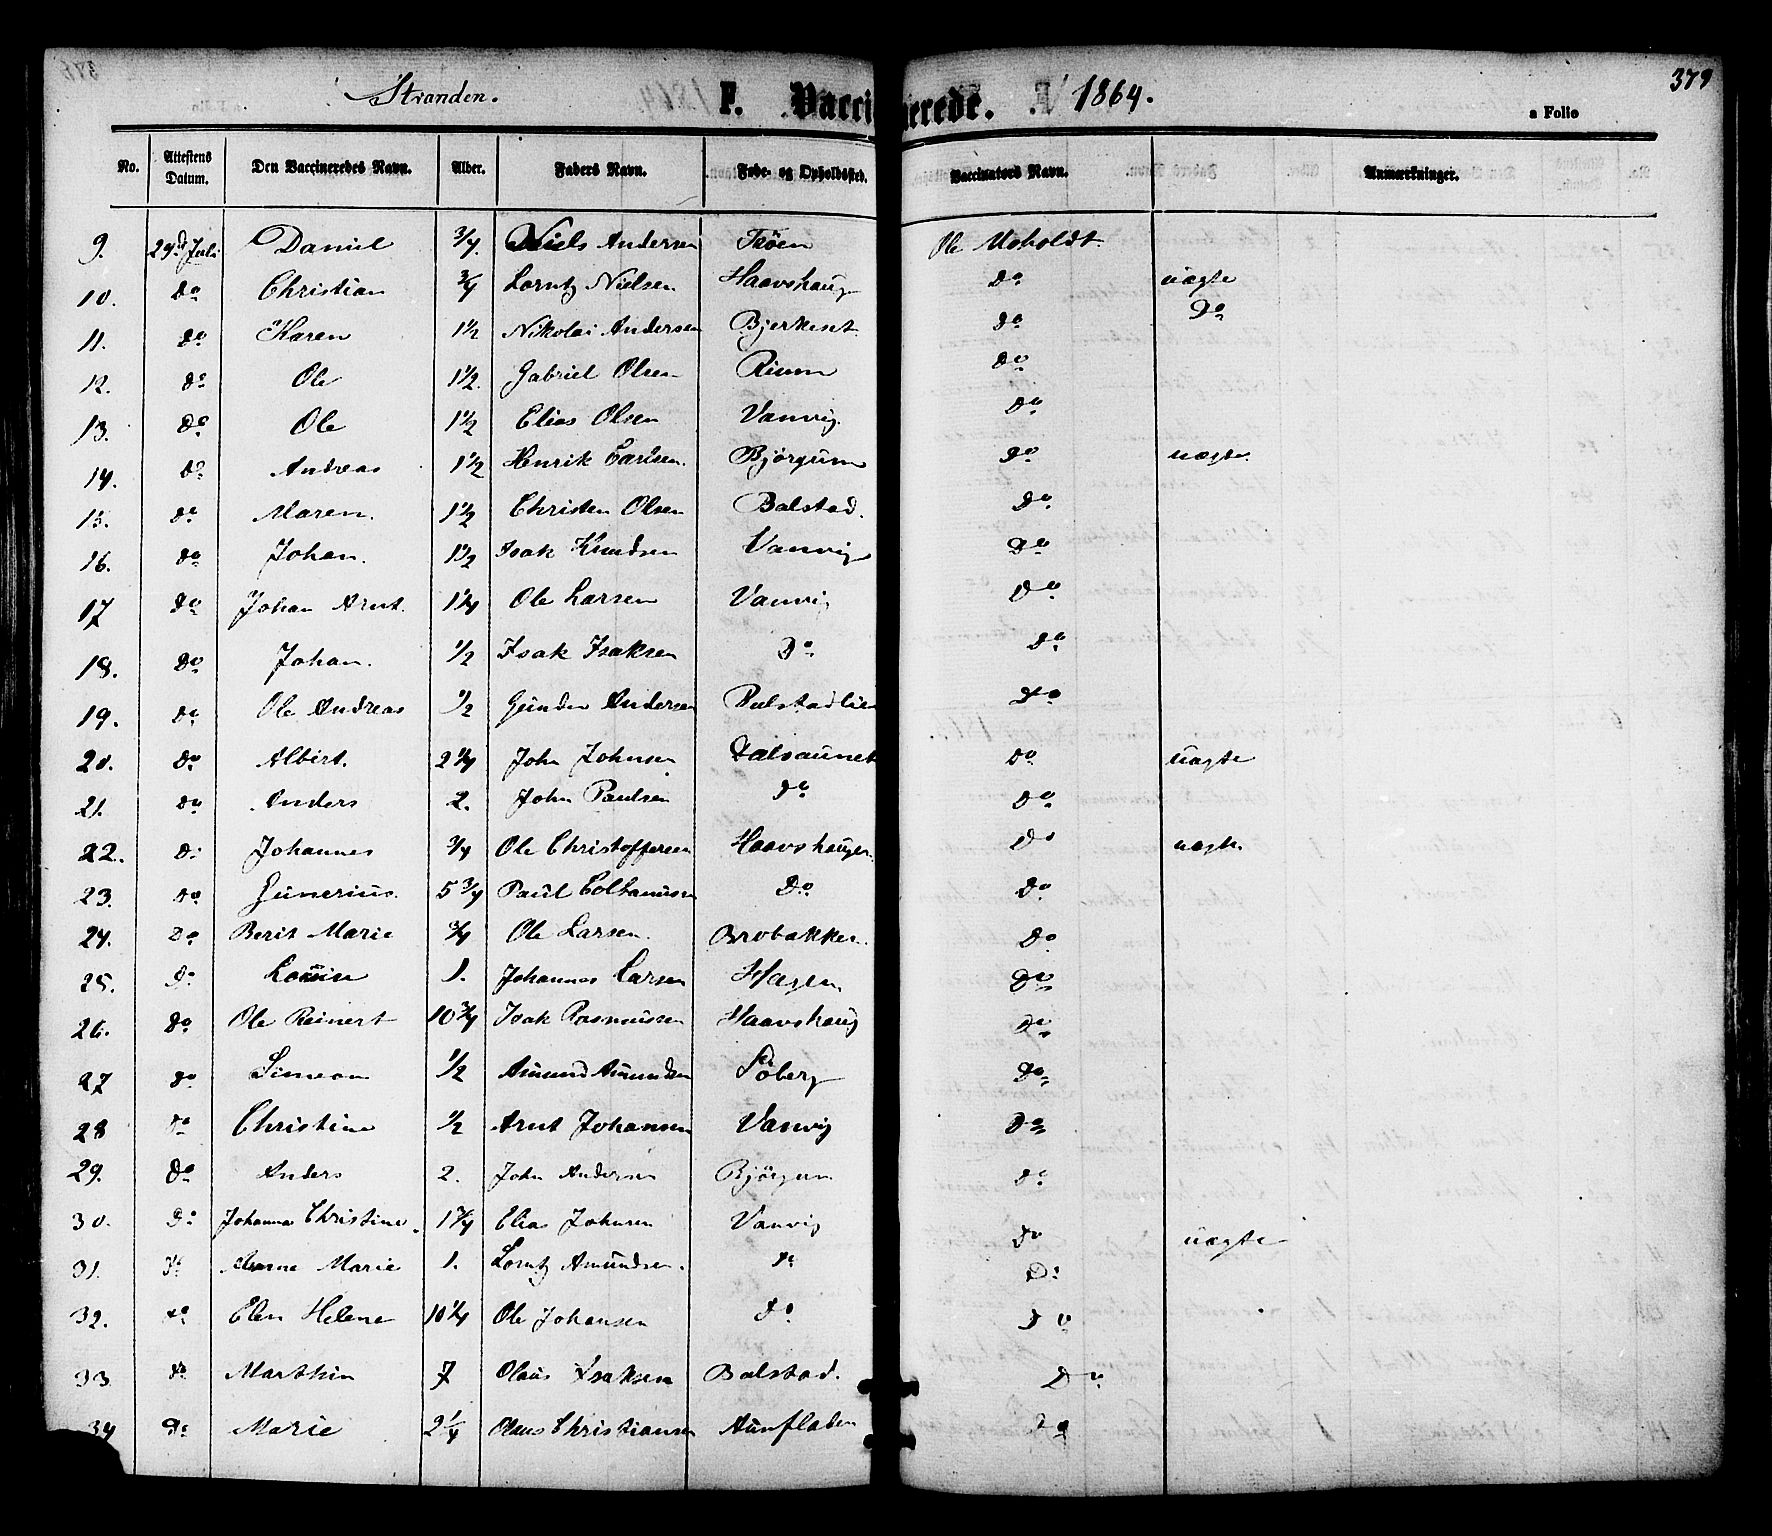 Stranden. F. Vaccinerede. 1864. 379
a Folio
No. Attestens Datum. Den Vaccineredes Navn. Alder. Faders Navn. Føde- og Opholdssted. Vaccinators Navn. Anmærkninger.
9. 29d Juli Daniel 3/4. Niels Andersen Trøen Ole Moholdt
10. do Christian 3/4 Lorntz Nielsen Haavshaug do uægte
11. do Karen 1 1/2 Nikolai Andersen do Do
12. do Ole 1 1/2. Gabriel Olsen do
13. do Ole 1 1/2 Elias Olsen Vanvig. do
14. do Andreas 1 1/2 Henrik Carlsen. Björgum do uægte.
15. do Maren. 1 1/2 Christen Olsen Balstad. do
16. do Johan. 1 1/2 Isak Knudsen Vanvig do
17 do Johan Arnt. 1 1/4 Ole Larsen Vanvig Do
18. do Johan. 1/2 Isak Isaksen Do do
19. do Ole Andreas 1/2 Gunder Andersen Balstadlien do
20. do Albert. 2 1/4 John Johnsen Dalsaunet do uægte
21. do Anders 2. John Paulsen do do
22. do Johannes 3/4 Ole Christoffersen Haavshaugen do uægte.
23. do Gunerius. 5 3/4 Paul Do do
24. Do Berit Marie 3/4 Ole Larsen. Brobakken. do
25. do Lovise 1. Johannes Larsen Hagen do
26. do Ole Reinert 10 3/4 Isak Rasmussen Haavshaug do
27 do Simeon 1/2 Amund Amundsen Söberg do
28 do Christine 1/2 Arnt Johansen Vanvig do
29. do Anders 2. John Andersen Björgum do
30. do Johanna Christine. 1 3/4 Elias Johnsen Vanvig do uægte
31. do Marie 1. Lorntz Amundsen. do D:
32. do Elen Helene 10 1/4 Ole Johansen do do
33. do Marthin 7 Olaus Isaksen Balstad. Do
34 Do Marie 2 1/4 Olaus Christiansen Aunfladen do